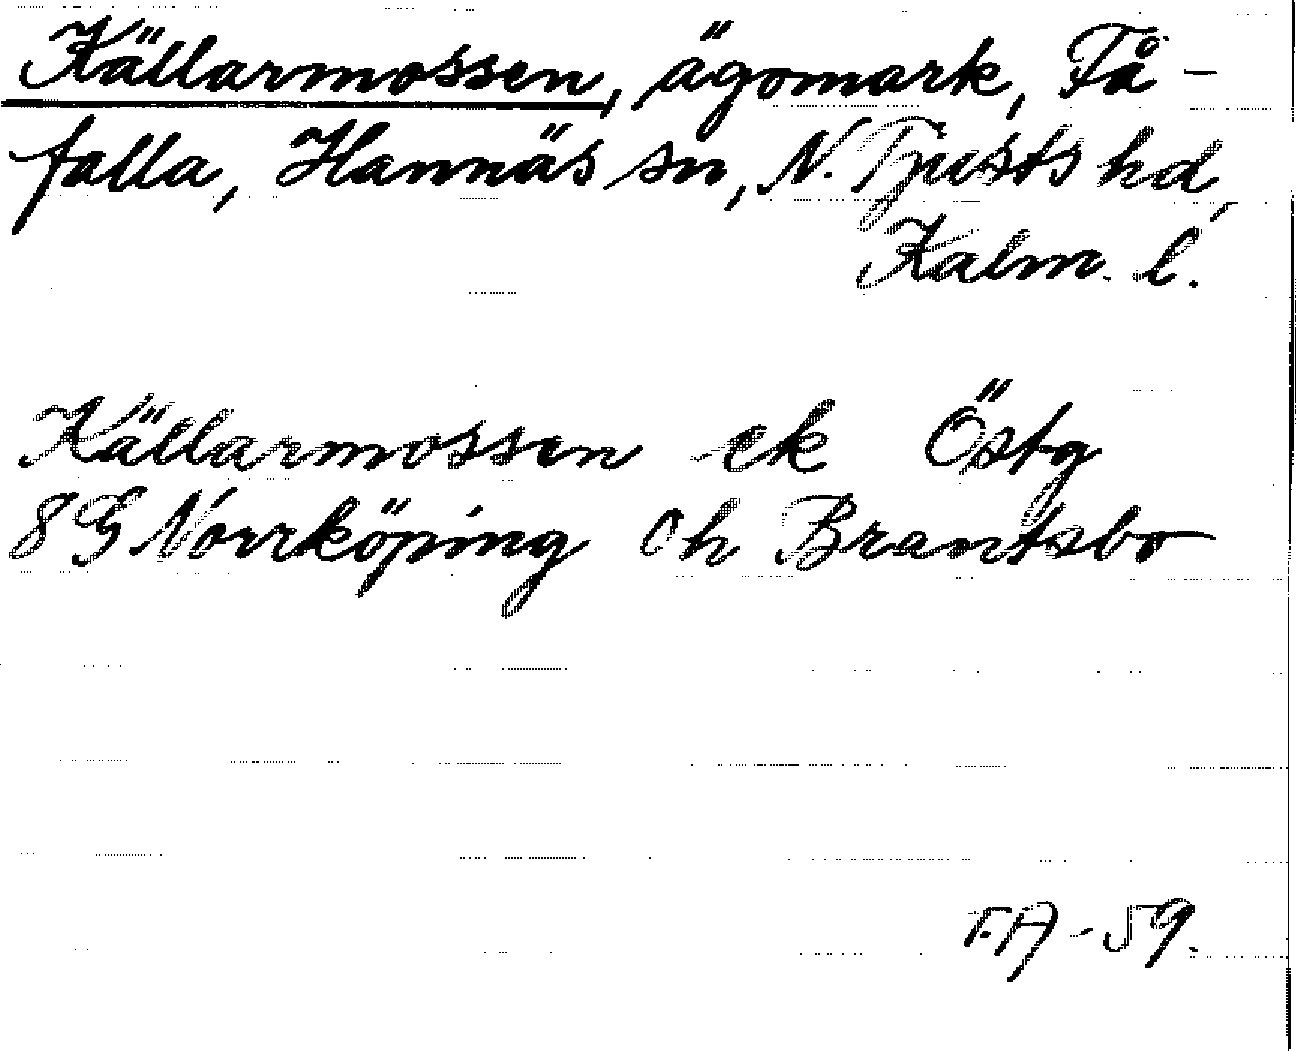 Källarmossen, ägomark, Få-
falla, Hannäs sn, N. Tjusts hd,
Kalm. l.
Källarmossen ek Östg
8 G Norrköping Ch Brantsbo
F.A - 59.